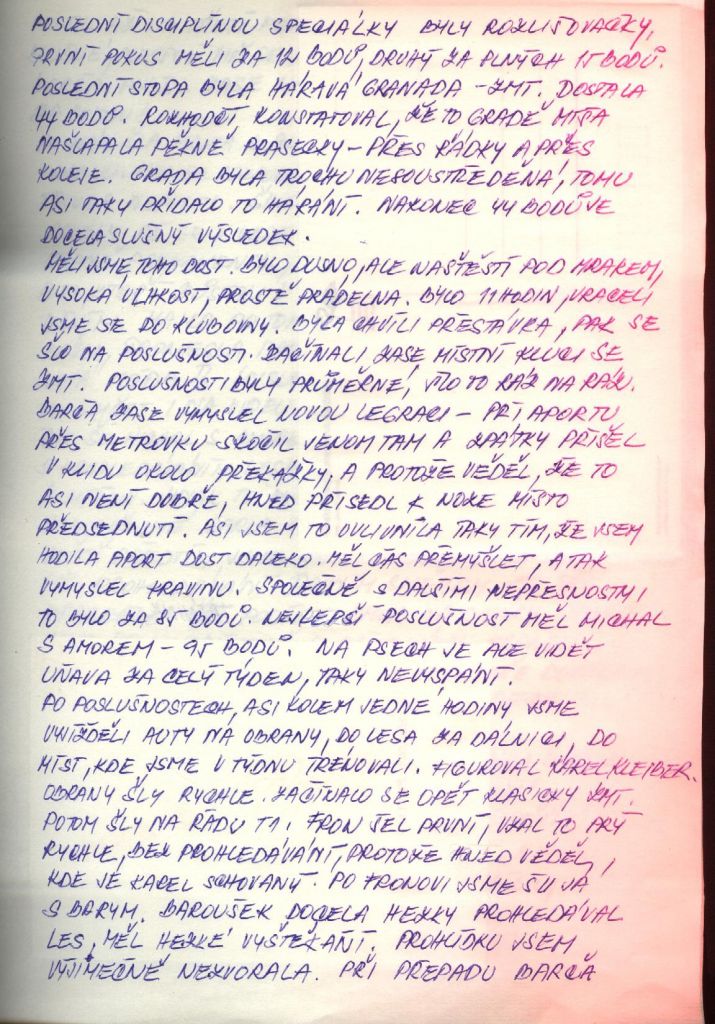 POSLEDNÍ DISCIPLÍNOU SPECIÁLKY BYLY ROZLIŠOVAČKY,
PRVNÍ POKUS MĚLI ZA 12 BODŮ, DRUHÝ ZA PLNÝCH 15 BODŮ.
POSLEDNÍ STOPA BYLA HÁRAVÁ GRANADA - ZMT. DOSTALA
44 BODŮ. ROZHODČÍ KONSTATOVAL, ŽE TO GRADĚ MÍŠA
NAŠLAPALA PĚKNĚ PRASECKY - PŘES ŘÁDKY A PŘES
KOLEJE. GRADA BYLA TROCHU NESOUSTŘEDĚNÁ, TOMU
ASI TAKY PŘIDALO TO HÁRÁNÍ. NAKONEC 44 BODŮ JE
DOCELA SLUŠNÝ VÝSLEDEK.
MĚLI JSME TOHO DOST. BYLO DUSNO, ALE NAŠTĚSTÍ POD MRAKEM,
VYSOKÁ VLHKOST, PROSTĚ PRÁDELNA. BYLO 11 HODIN, VRACELI
JSME SE DO KLUBOVNY. BYLA CHVÍLI PŘESTÁVKA, PAK SE
ŠLO NA POSLUŠNOSTI. ZAČÍNALI ZASE MÍSTNÍ KLUCI SE
ZMT. POSLUŠNOSTI BYLY PRŮMĚRNÉ, ŠLO TO RÁZ NA RÁZ.
BARČA ZASE VYMYSLEL NOVOU LEGRACI - PŘI APORTU
PŘES METROVKU SKOČIL JENOM TAM A ZPÁTKY PŘIŠEL
V KLIDU OKOLO PŘEKÁŽKY, A PROTOŽE VĚDĚL, ŽE TO
ASI NENÍ DOBŘE, HNED PŘISEDL K NOZE MÍSTO
PŘEDSEDNUTÍ. ASI JSEM TO OVLIVNILA TAKY TÍM, ŽE JSEM
HODILA APORT DOST DALEKO. MĚL ČAS PŘEMÝŠLET, A TAK
VYMYSLEL KRAVINU. SPOLEČNĚ S DALŠÍMI NEPŘESNOSTMI
TO BYLO ZA 85 BODŮ. NEJLEPŠÍ POSLUŠNOST MĚL MICHAL
S AMOREM - 95 BODŮ. NA PSECH JE ALE VIDĚT
ÚNAVA ZA CELÝ TÝDEN, TAKY NEVYSPÁNÍ.
PO POSLUŠNOSTECH, ASI KOLEM JEDNÉ HODINY JSME
VYJÍŽDĚLI AUTY NA OBRANY, DO LESA ZA DÁLNICI, DO
MÍST, KDE JSME V TÝDNU TRÉNOVALI. FIGUROVAL KAREL KLEIBER.
OBRANY ŠLY RYCHLE. ZAČÍNALO SE OPĚT KLASICKY ZMT.
POTOM ŠLY NA ŘADU T1. FRON ŠEL PRVNÍ, VZAL TO PRÝ
RYCHLE, BEZ PROHLEDÁVÁNÍ, PROTOŽE HNED VĚDĚL,
KDE JE KAREL SCHOVANÝ. PO FRONOVI JSME ŠLI JÁ
S BARYM. BAROUŠEK DOCELA HEZKY PROHLEDÁVAL
LES, MĚL HEZKÉ VYŠTĚKÁNÍ. PROHLÍDKU JSEM
VÝJIMEČNĚ NEZVORALA. PŘI PŘEPADU BARČA